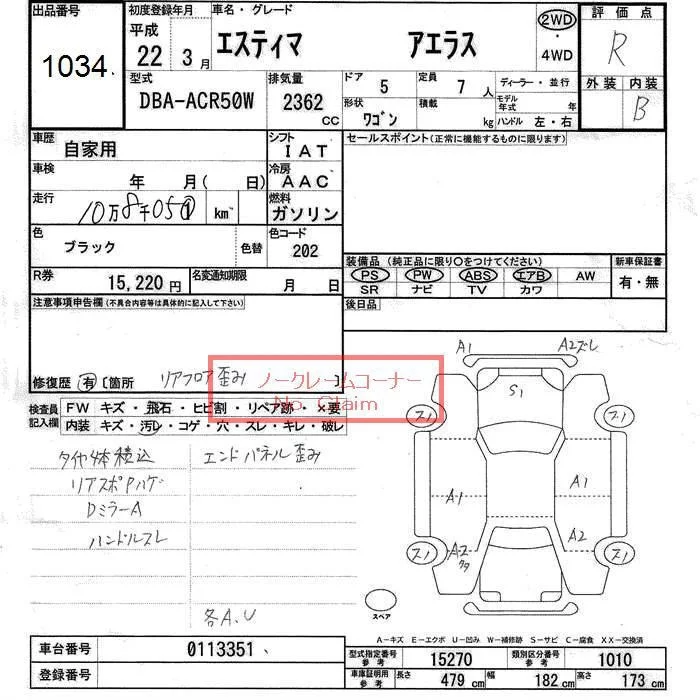 出品番号
1034
初度登録年月
平成
22 3月
車名・グレード
エスティマ アエラス
2WD
・
4WD
評価点
R
外装 内装
B
型式
DBA-ACR50W
排気量
2362
cc
ドア 5
定員 7 人
形状 ワゴン
積載 kg
ディーラー・並行
モデル年式 年
ハンドル 左・右
車歴
自家用
シフト
IAT
車検
年 月( 日)
冷房
AAC
走行
km
燃料
ガソリン
色
ブラック
色替
色コード
202
R券 15,220 円
名変通知期限 月 日
セールスポイント(正常に機能するものに限ります)
装備品 (純正品に限り○をつけてください)
PS PW ABS エアB AW
SR ナビ TV カワ
新車保証書
有・無
後日品
注意事項申告欄(不具合内容等は具体的に記入して下さい)
修復歴 有 〔箇所 リアフロア歪み 〕
ノークレームコーナー
No Claim
検査員記入欄
FW キズ・飛石・ヒビ割・リペア跡・×要
内装 キズ・汚レ・コゲ・穴・スレ・キレ・破レ
タイヤ4本積込
リアスポPハゲ
DミラーA
ハンドルスレ
エンドパネル歪み
各A.U
A1 A2ズレ
S1
A1 A1
A2
A2
スペア
A-キズ E-エクボ U-凹み W-補修跡 S-サビ C-腐食 XX-交換済
車台番号 0113351
登録番号
型式指定番号 参考 15270
類別区分番号 参考 1010
車庫証明用 参考
長さ 479 cm
幅 182 cm
高さ 173 cm